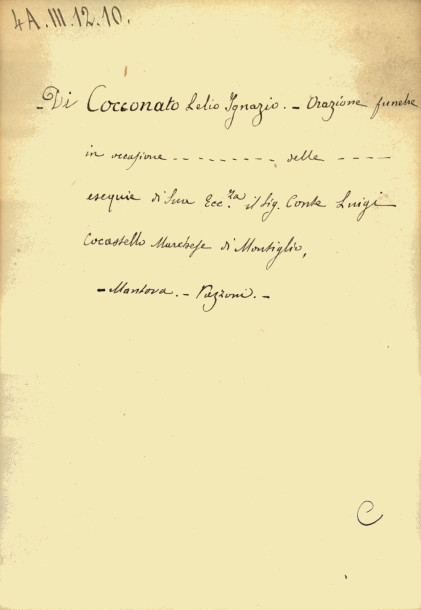 4A.III.12.10.
Di Cocconato Lelio Ignazio. - Orazione funebre
in occasione - - - - - - - - - delle - - - -
esequie di Sua Ecc.za il Sig. Conte Luigi
Cocastello Marchese di Montiglio,
- Mantova. - Pazzoni. -
C